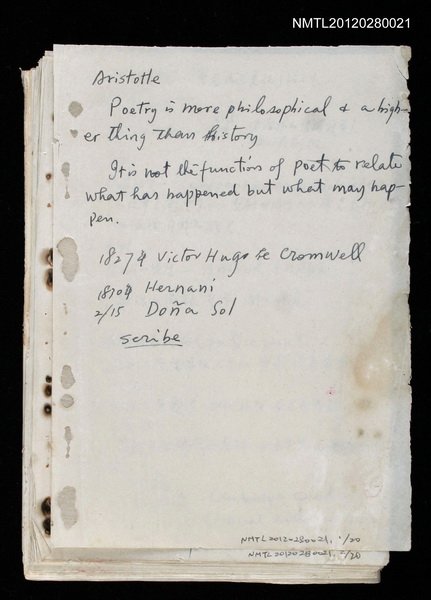 NMTL20120280021
Aristotle
Poetry is more philosophical & a high-
er thing than history
It is not the function of poet to relate
what has happened but what may hap-
pen.
1827年 Victor Hugo Le Cromwell
1830年 Hernani
2/15 Doña Sol
scribe
NMTL20120280021, 1/20
NMTL20120280021, 2/20